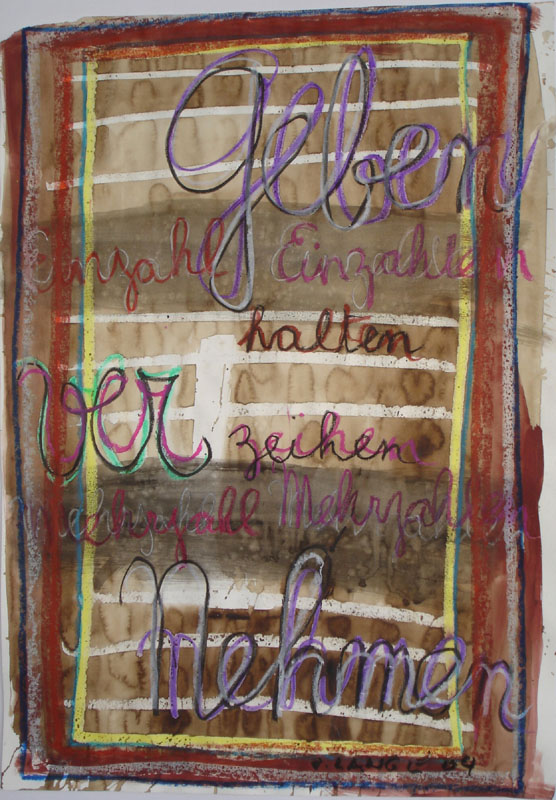 Geben
Einzahl Einzahlen
halten
Ver zeihen
Mehrzahl Mehrzahlen
Nehmen